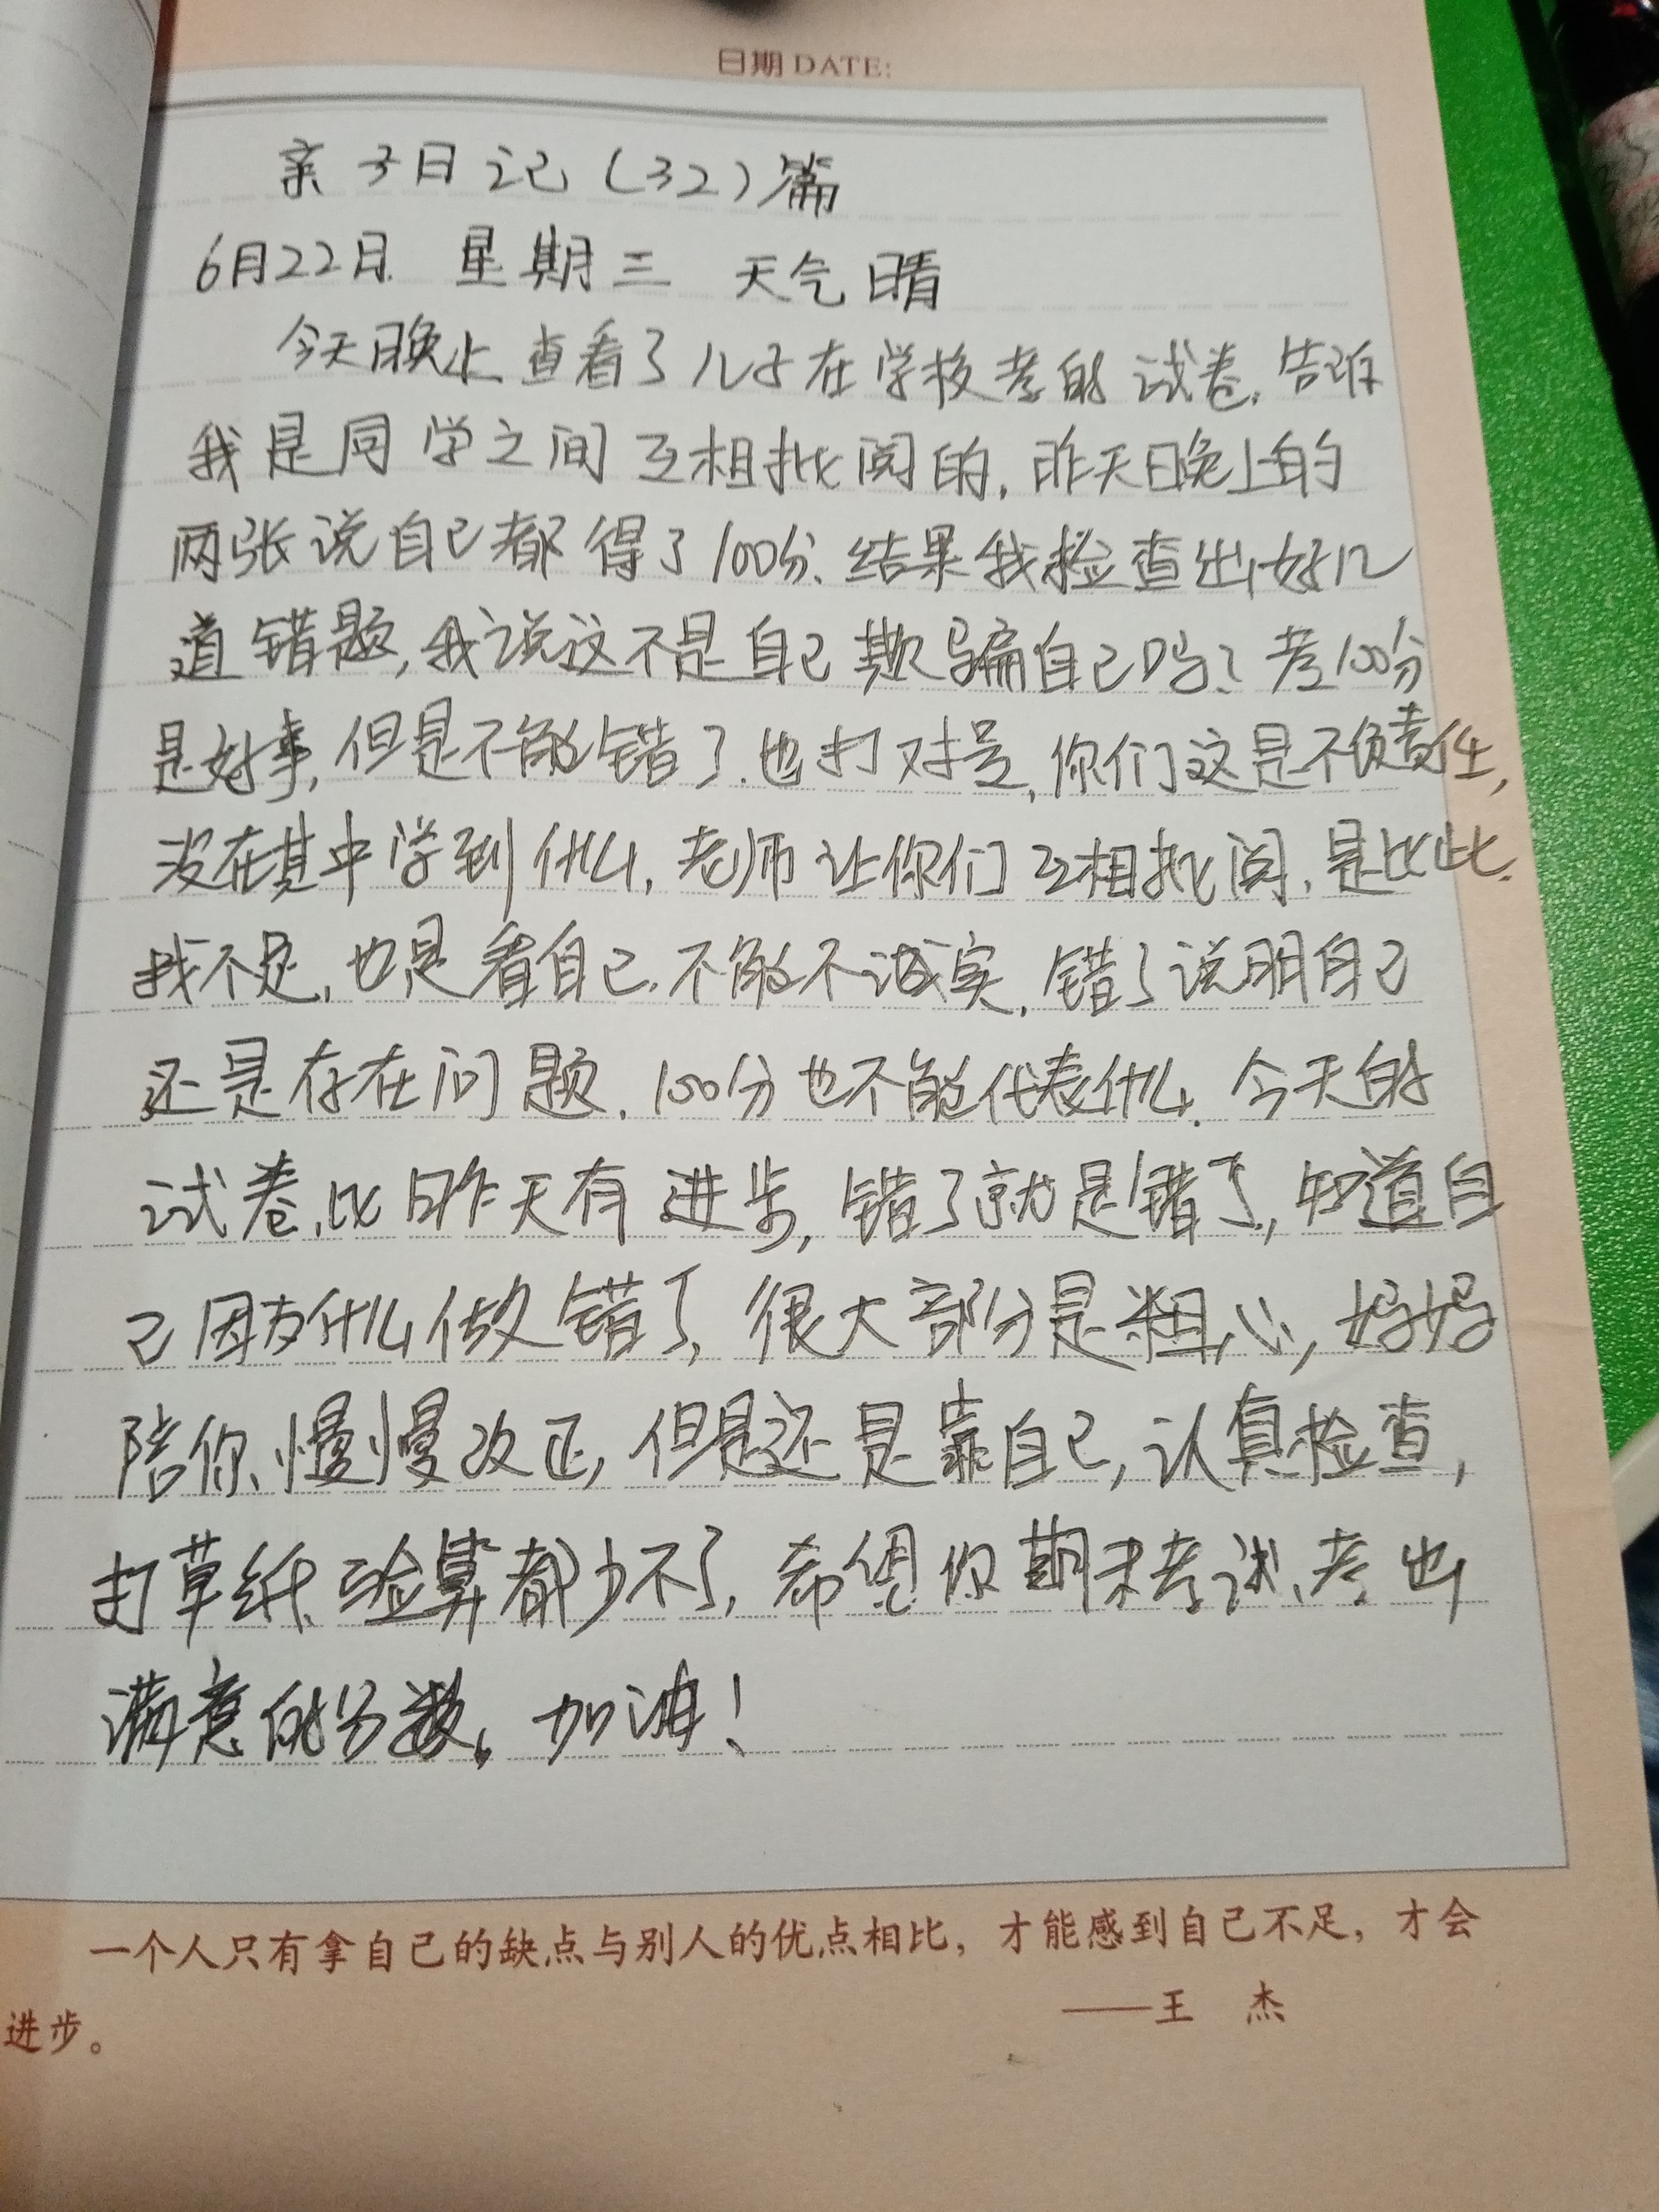 日期 DATE:
亲子日记(32)篇
6月22日 星期三 天气晴
今天晚上查看了儿子在学校考的试卷,告诉
我是同学之间互相批阅的,昨天晚上的
两张说自己都得了100分、结果我检查出好几
道错题,我说这不是自己欺骗自己吗?考100分
是好事,但是不能错了.也打对号,你们这是不负责任,
没在其中学到什么,老师让你们互相批阅,是比比.
找不足,也是看自己.不能不诚实,错了说明自己
还是存在问题.100分也不能代表什么.今天的
试卷,比昨天有进步,错了就是错了,知道自
己因为什么做错了,很大部分是粗心,妈妈
陪你、慢慢改正,但是还是靠自己,认真检查,
打草纸、验算都少不了,希望你期末考试、考出
满意的分数。加油!
一个人只有拿自己的缺点与别人的优点相比,才能感到自己不足,才会
进步。
——王 杰